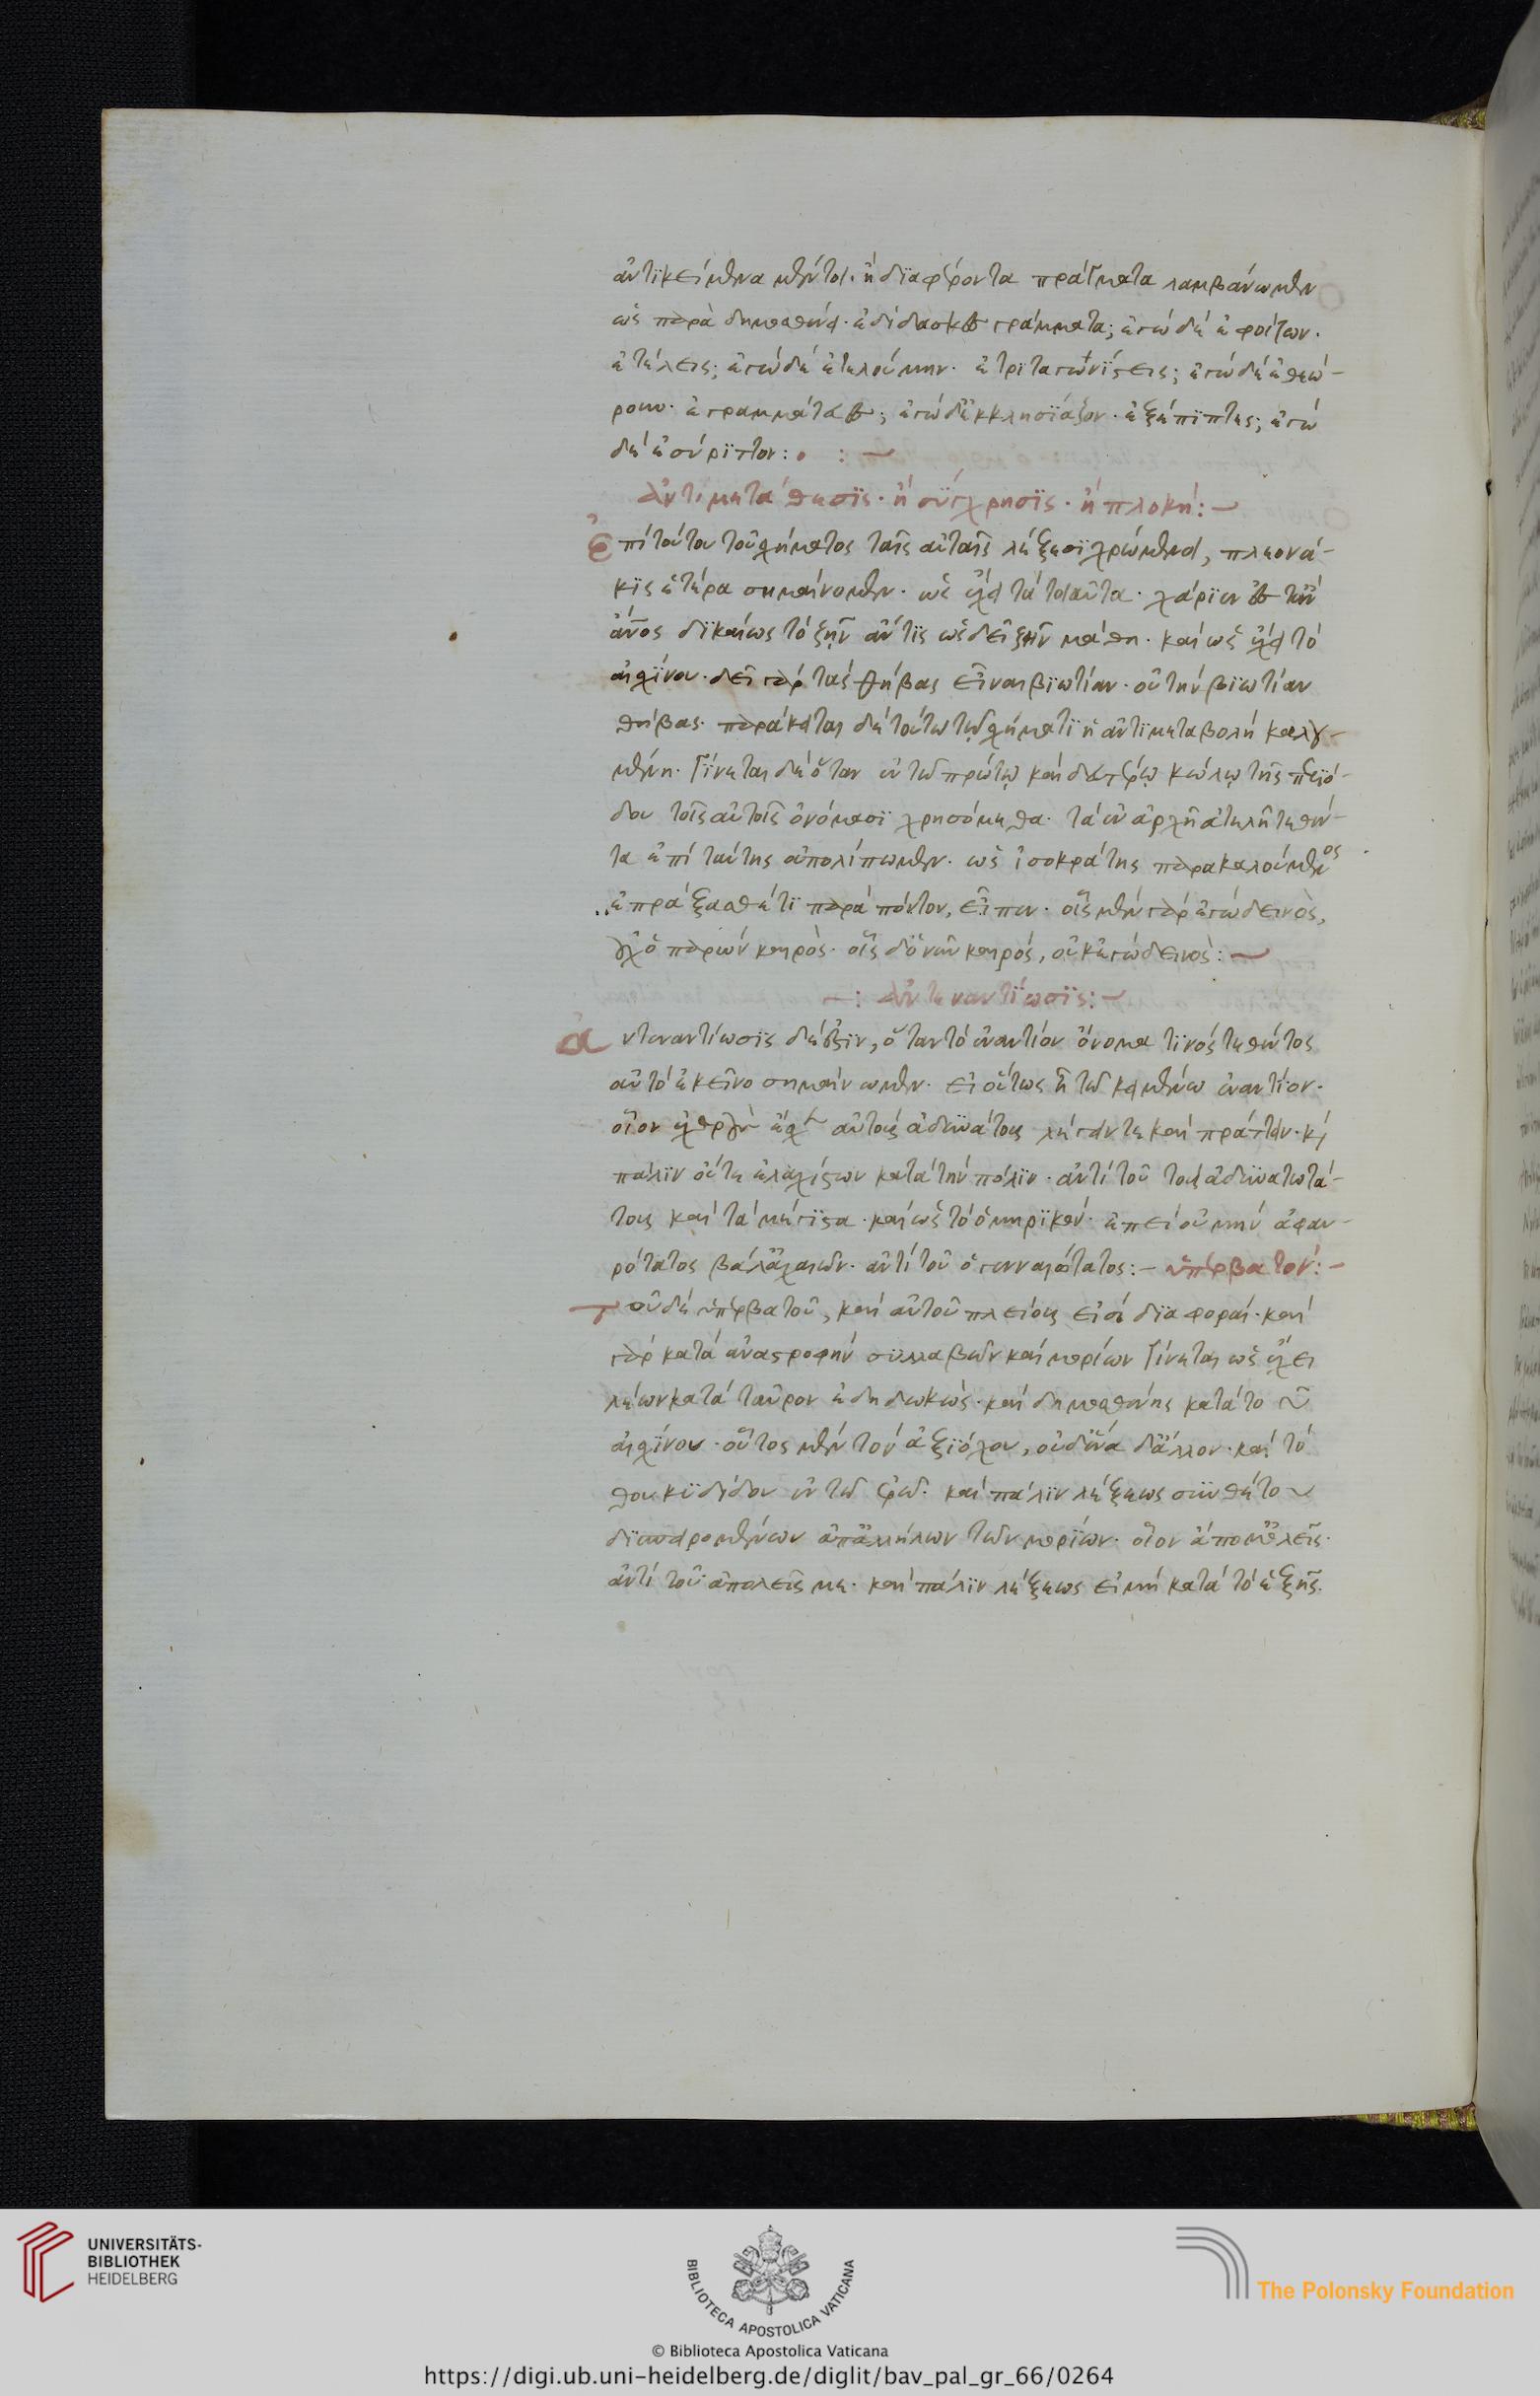 ἀντικείμενα μέντοι· ἢ διαφέροντα πράγματα λαμβάνωμεν
ὡς παρὰ δημοσθένει· ἐδίδασκες γράμματα; ἐγὼ δὲ ἐφοίτων·
ἐτέλεις; ἐγὼ δὲ ἐτελούμην· ἐτριταγωνίστεις; ἐγὼ δὲ ἐθεώ-
ρουν· ἐγραμμάτευες; ἐγὼ δ' ἐκκλησίαζον· ἐξέπιπτες; ἐγὼ
δὲ ἐσύριττον:
Ἀντιμετάθεσις· ἢ σύγχρησις· ἢ πλοκή:-
Ἐπὶ τούτου τοῦ σχήματος ταῖς αὐταῖς λέξεσι χρώμενοι, πλεονά-
κις ἕτερα σημαίνομεν· ὡς ἔχει τὰ τοιαῦτα·
ἄνος δικαίως τὸ ζῆν ἄν τις ὡς δεῖ ζῆν μάθη· καὶ ὡς ἔχει τὸ
αἰσχίνου· δεῖ γὰρ τὰς θήβας εἶναι βιωτίαν· οὐ τὴν βιωτίαν
θήβας· παράκειται δὲ τούτω τῷ σχήματι ἡ ἀντιμεταβολὴ καλου-
μένη· Γίνεται δὲ ὅταν ἐν τῷ πρώτῳ καὶ δευτέρῳ κώλῳ τῆς περιό-
δου τοῖς αὐτοῖς ὀνόμασι χρησόμεθα· τὰ ἐν ἀρχῆ τεθέν-
τα ἐπὶ ταύτης ἀπολίπωμεν· ὡς ἰσοκράτης παρακαλούμενος
πράξασθέ τι παρὰ πότον, εἶπεν· οἷς μὲν γὰρ ἐγὼ δεινὸς,
οὐχ ὁ παρὼν καιρὸς· οἷς δ' ὁ νῦν καιρός, οὐκ ἐγὼ δεινὸς:-
-: Ἀντεναντίωσις:-
ἀντεναντίωσις δέ ἐστιν, ὅταν τὸ ἐναντίον ὄνομα τινός τεθέντος
αὐτὸ ἐκεῖνο σημαίνωμεν· εἰ οὕτως ἢ τῶ κειμένω ἐναντίον·
οἷον αὐτοὺς ἀδυνάτους λέγειν τε καὶ πράττειν· καὶ
πάλιν οὔτε ἐλαχίστων κατὰ τὴν πόλιν· ἀντὶ τοῦ τοὺς ἀδυνατωτά-
τους καὶ τὰ μέγιστα· καὶ ὡς τὸ ὁμηρικόν· ἐπεὶ οὐ μὴν ἀφαυ-
ρότατος βάλ' ἀχαιῶν· ἀντὶ τοῦ ὁ γενναιότατος:- ὑπέρβατον:-
τοῦ δὲ ὑπερβατοῦ, καὶ αὐτοῦ πλείους εἰσὶ διαφοραὶ· καὶ
γὰρ κατὰ ἀναστροφὴν συλλαβῶν καὶ μορίων Γίνεται ὡς ἔχει
λέων κατὰ ταῦρον ἐδηδωκὼς· καὶ δημοσθένης κατὰ το
αἰσχίνου· οὗτος μὲν τοῦ ἀξιόχου, ὁ δεῖνα δ' ἄλλου· καὶ τὸ
θουκυδίδου ἐν τῷ · καὶ πάλιν λέξεως συνθέτου
διισταμένων ἀπ' ἀλλήλων τῶν μορίων· οἷον ἀπο μ' ὀλεῖς·
ἀντὶ τοῦ ἀπολεῖς με· καὶ πάλιν λέξεως εἰ μὴ κατὰ τὸ ἑξῆς.
UNIVERSITÄTS-
BIBLIOTHEK
HEIDELBERG
BIBLIOTECA APOSTOLICA VATICANA
The Polonsky Foundation
© Biblioteca Apostolica Vaticana
https://digi.ub.uni-heidelberg.de/diglit/bav_pal_gr_66/0264